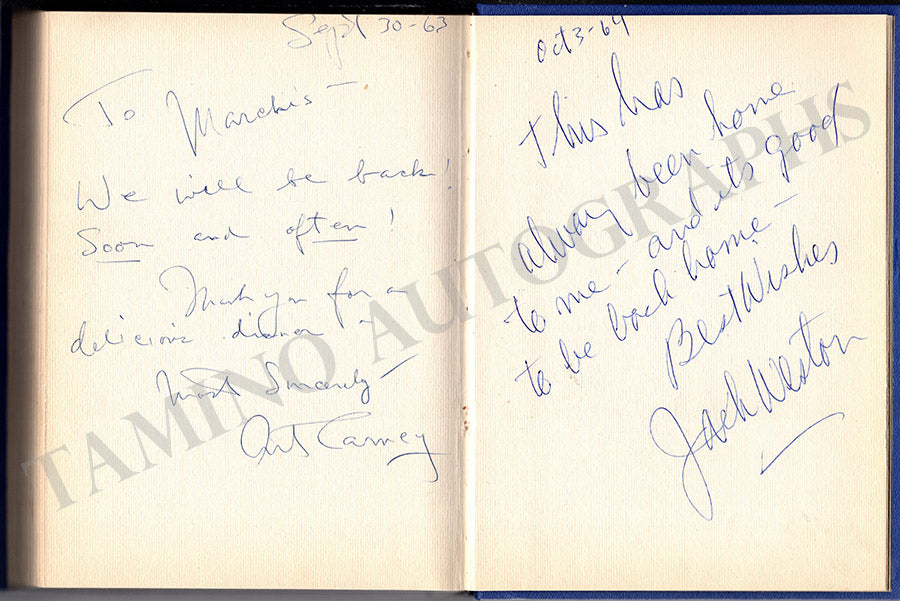 Sept 30-63
To Marchis -
We will be back!
Soon and often!
Thank you for a
delicious dinner -
Most Sincerely -
Art Carney
Oct 3-64
This has
alway been home
to me - and its good
to be back home -
Best Wishes
Jack Weston
TAMINO AUTOGRAPHS